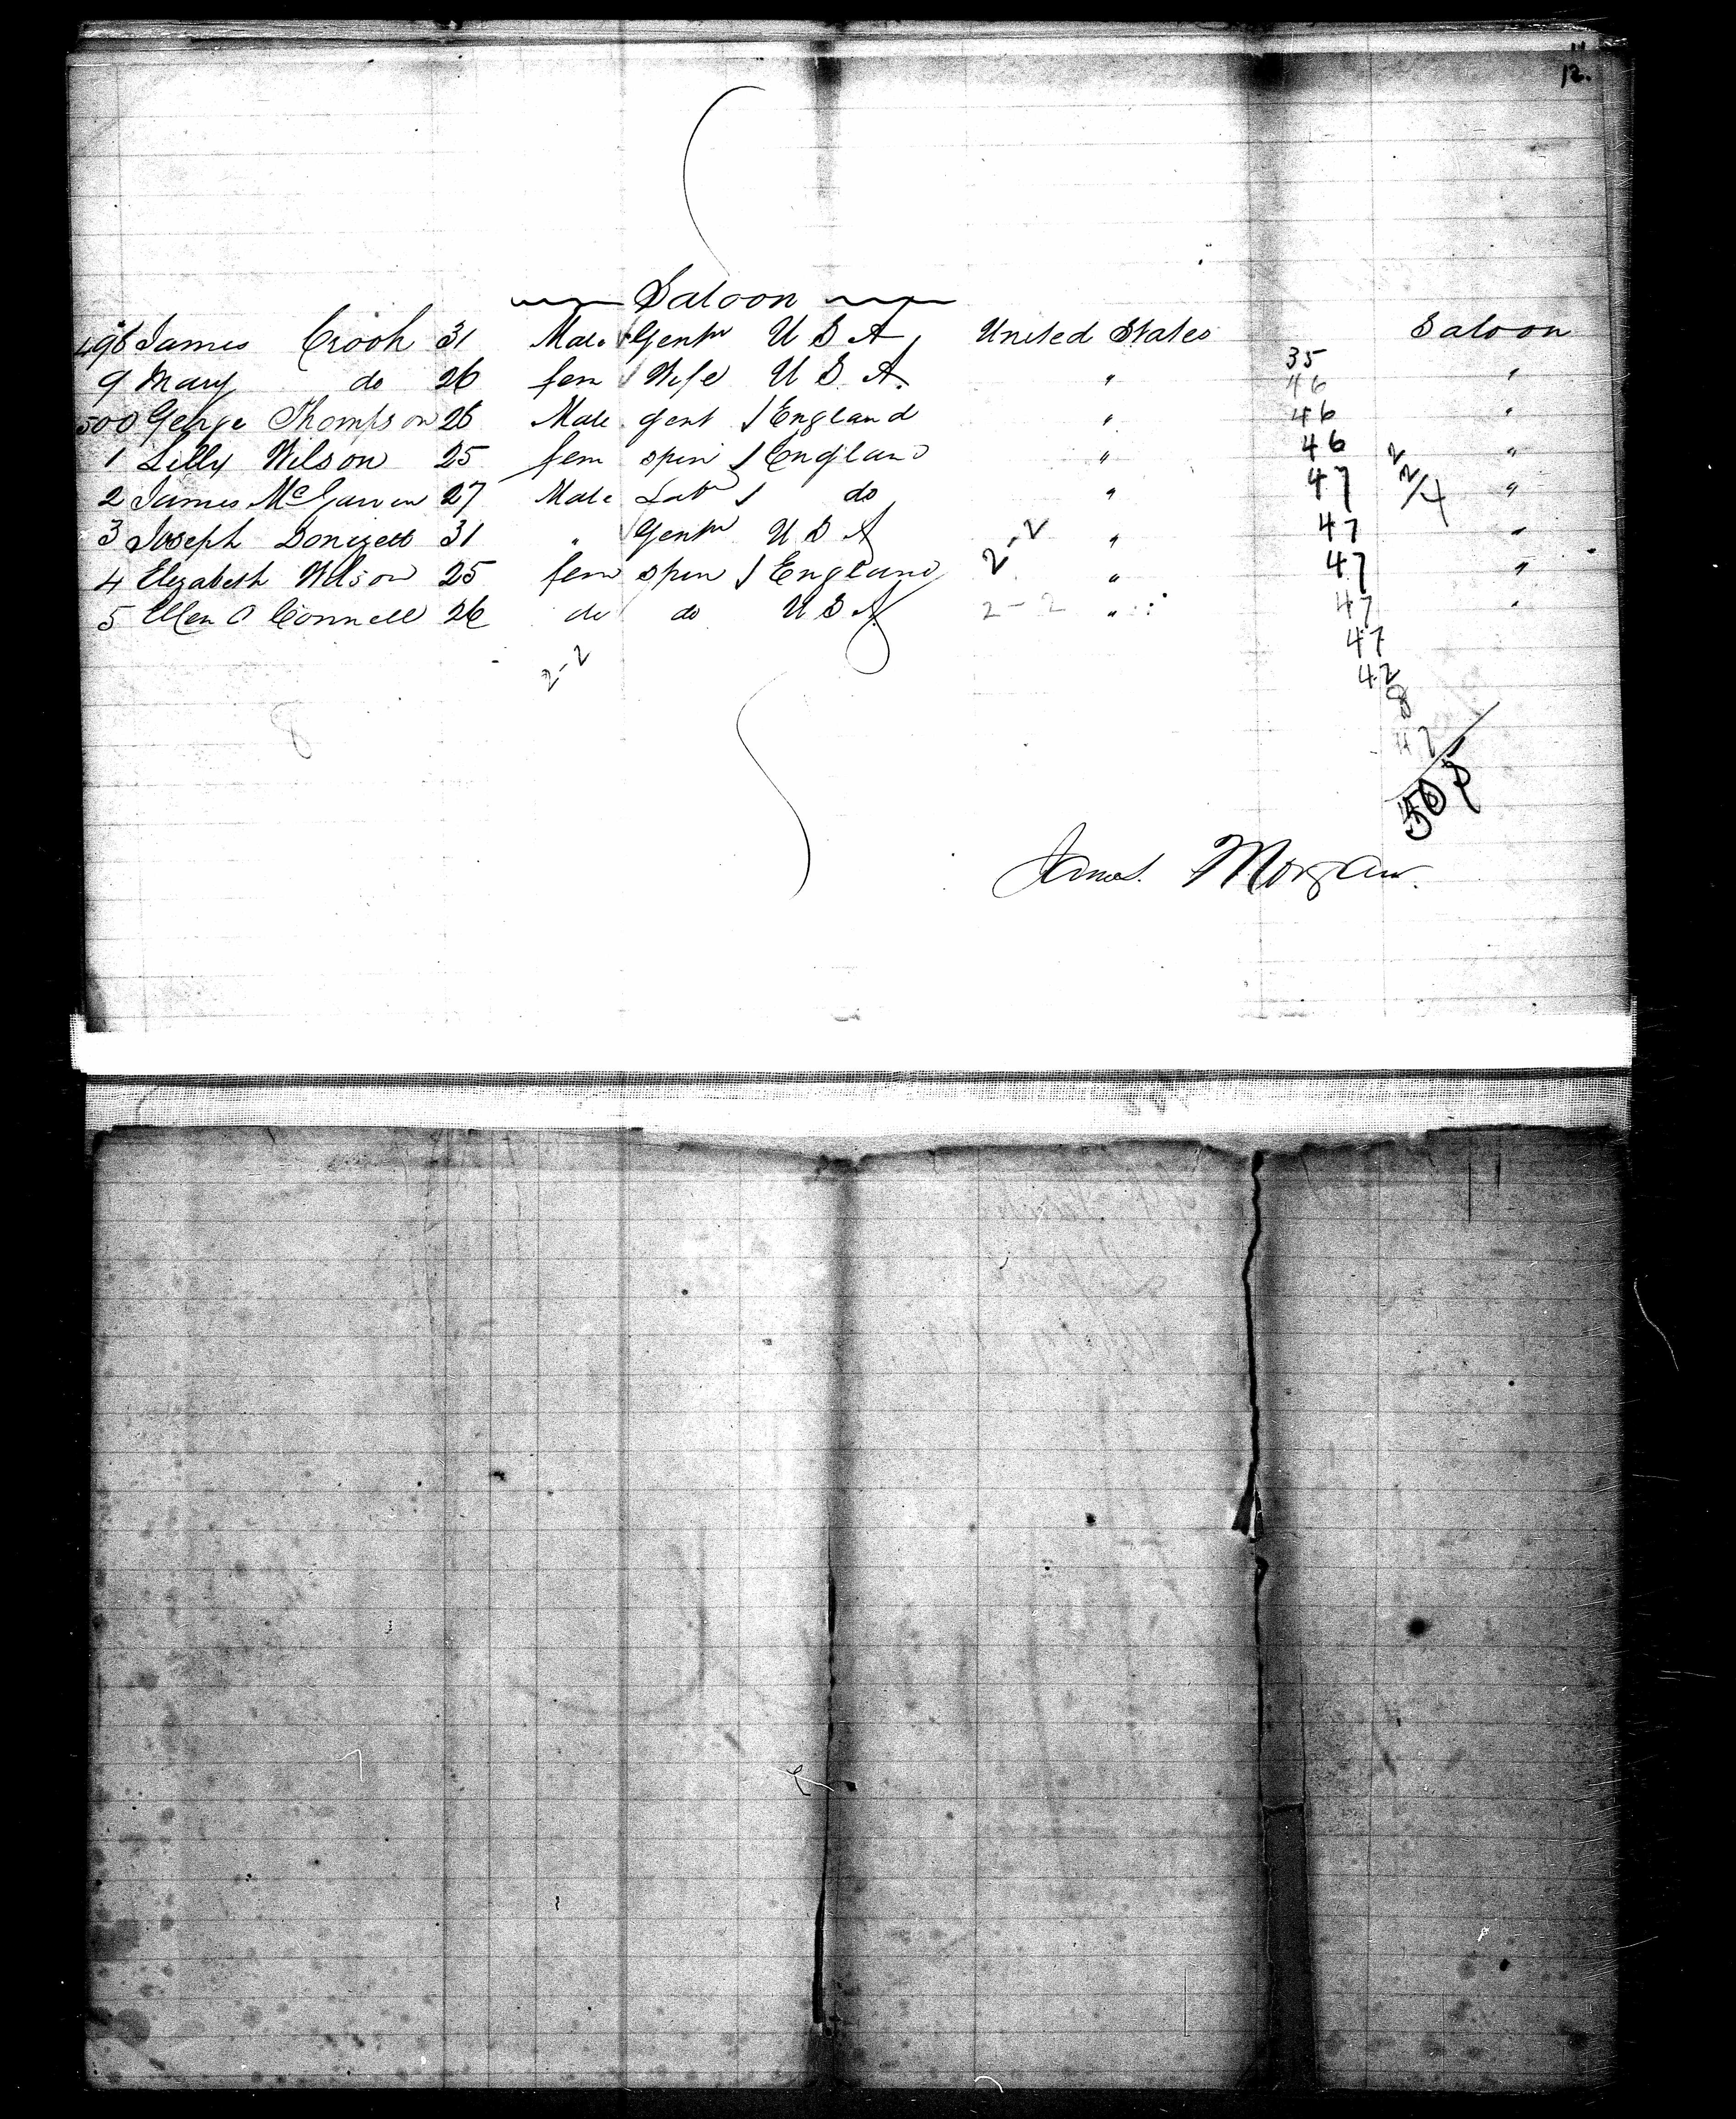 12.
Saloon
498 James Crook 31 Male Gentn U S A United States Saloon
35
9 Mary do 26 fem Wife U S A. " 46 "
500 George Thompson 26 Male gent England " 46 "
1 Lilly Wilson 25 fem spin England " 46 2 "
2 James McGarren 27 Male Labr do " 47 2/4 "
3 Joseph 31 " Gentn U S A 2-2 " 47 "
4 Elizabeth Wilson 25 fem spin England " 47 "
5 Ellen O Connell 26 do do U S A 2-2 " 47 "
47
2-2 42
8 8
47
505
James Morgan.